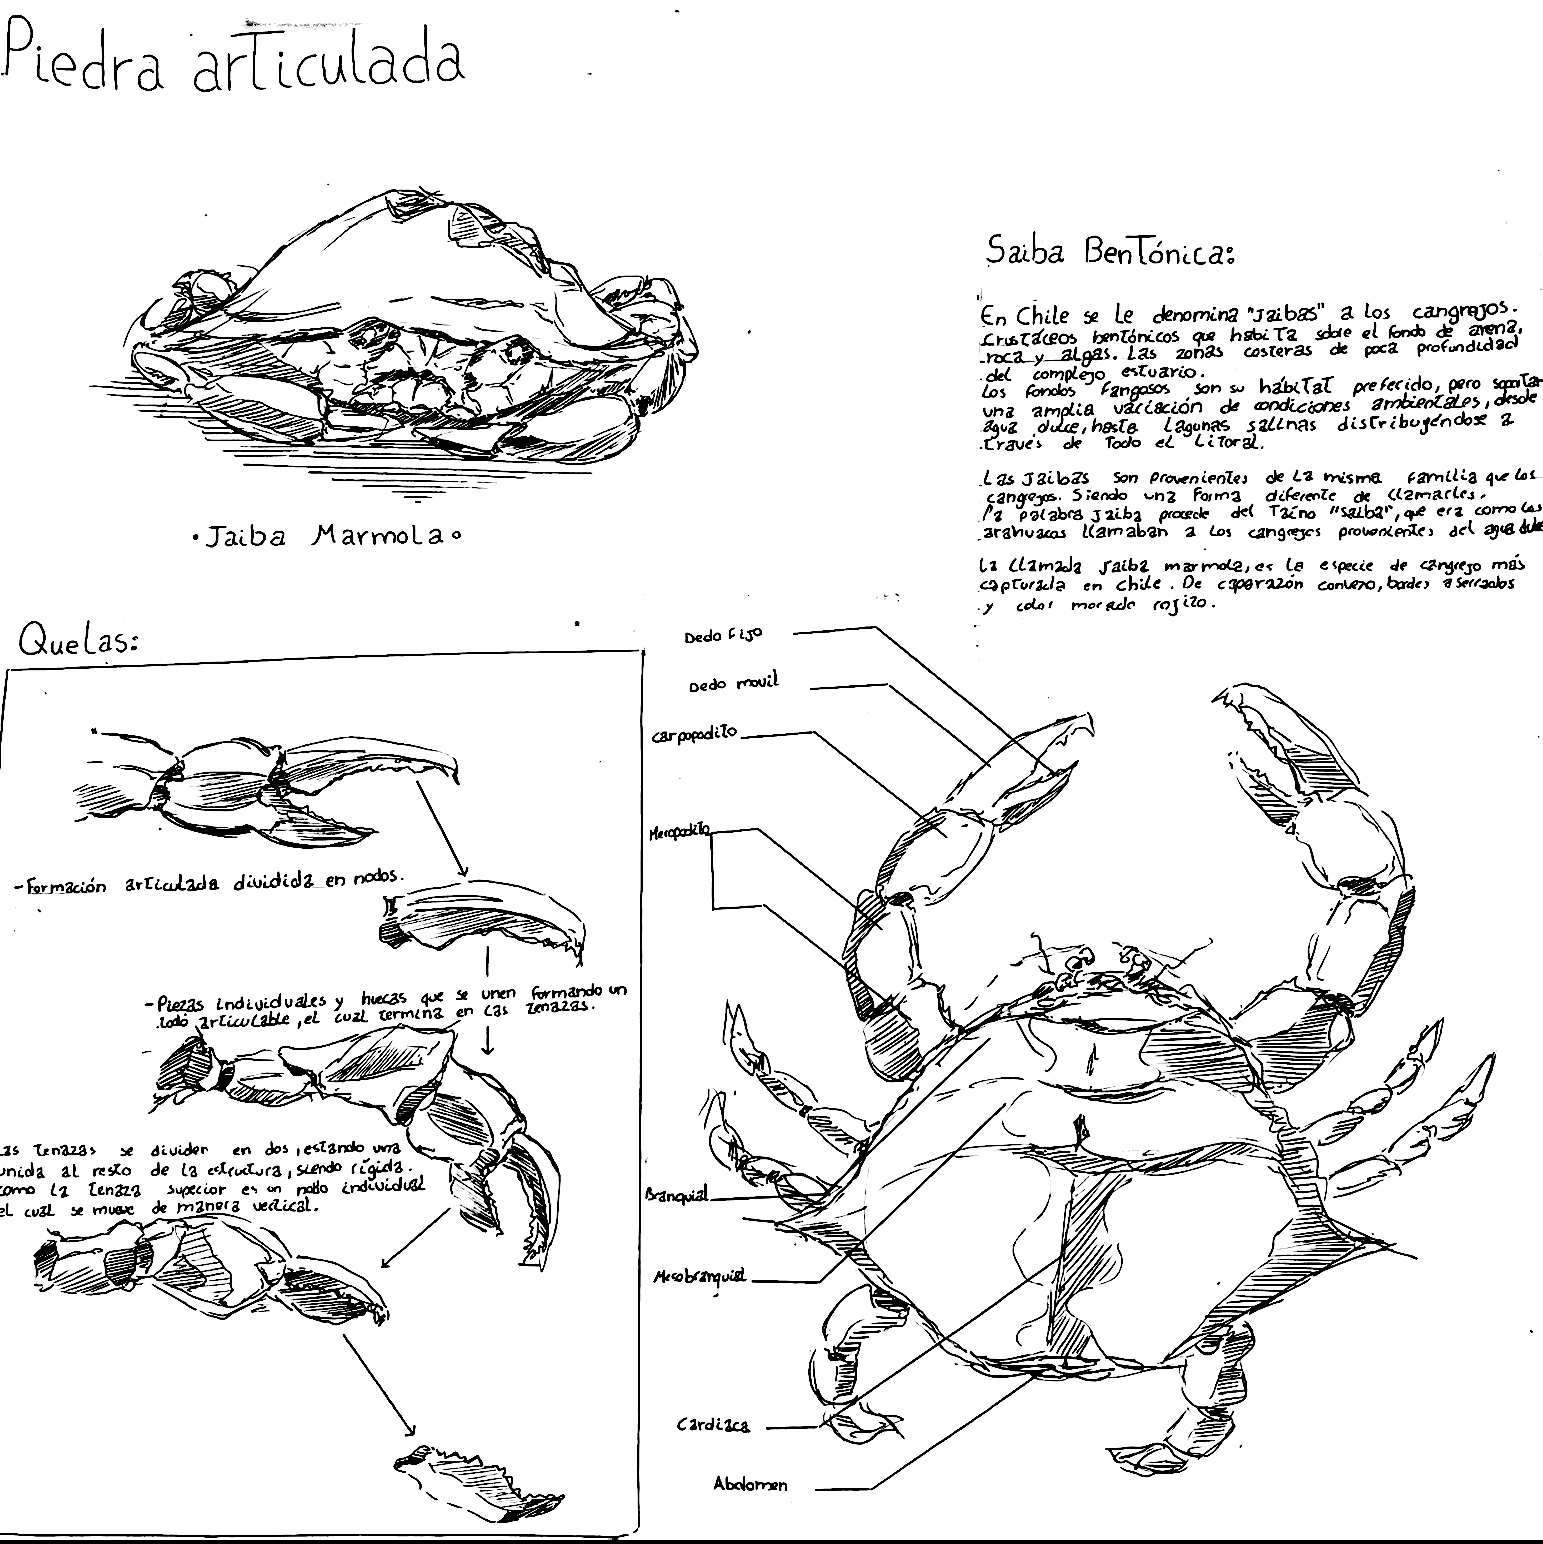 Piedra articulada
·Jaiba Marmola·
Saiba Bentónica:
En Chile se le denomina "Jaibas" a los cangrejos.
crustáceos bentónicos que habita sobre el fondo de arena,
roca y algas. Las zonas costeras de poca profundidad
del complejo estuario.
Los fondos fangosos son su hábitat preferido, pero soportan
una amplia variación de condiciones ambientales, desde
agua dulce, hasta lagunas salinas distribuyéndose a
través de todo el litoral.
Las Jaibas son provenientes de la misma familia que los
cangejos. Siendo una forma diferente de llamarles.
La palabra Jaiba procede del Taíno "Saiba", que era como los
arahuacos llamaban a los cangrejos provenientes del agua dulce
La llamada Jaiba marmola, es la especie de cangrejo más
capturada en chile. De caparazón convexo, bordes aserrados
y color morado rojizo.
Quelas:
-Formación articulada dividida en nodos.
-Piezas individuales y huecas que se unen formando un
todo articulable, el cual termina en las tenazas.
Las tenazas se dividen en dos, estando una
unida al resto de la estructura, siendo rígida.
como la tenaza superior es un nodo individual
el cual se mueve de manera vertical.
Dedo Fijo
Dedo movil
Carpopodito
Meropodito
Branquial
Mesobranquial
Cardiaca
Abdomen